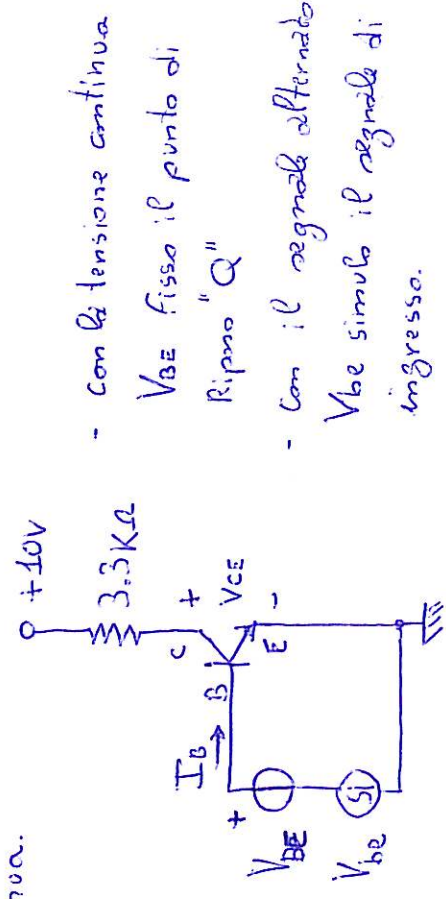 nua.
+10V
3.3KΩ
C
+
VCE
-
B
E
IB
+
VBE
Vbe
Si
- Con la tensione continua
VBE fisso il punto di
Riposo "Q"
- Con il segnale alternato
Vbe simulo il segnale di
ingresso.